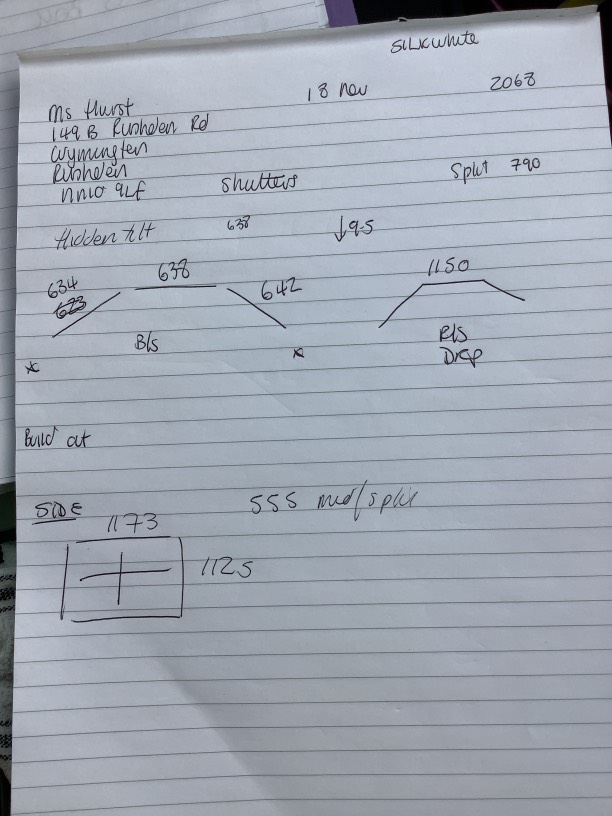 SILKWhite
18 Nov
2068
Ms Hurst
149 B Rushden Rd
Wymington
Rushden
NN10 9LF
Shutters
Split 790
Hidden tilt
638
↓95
634
623
638
642
1150
B/S
R/S
Drop
Build out
SIDE
1173
555 mid/split
1125